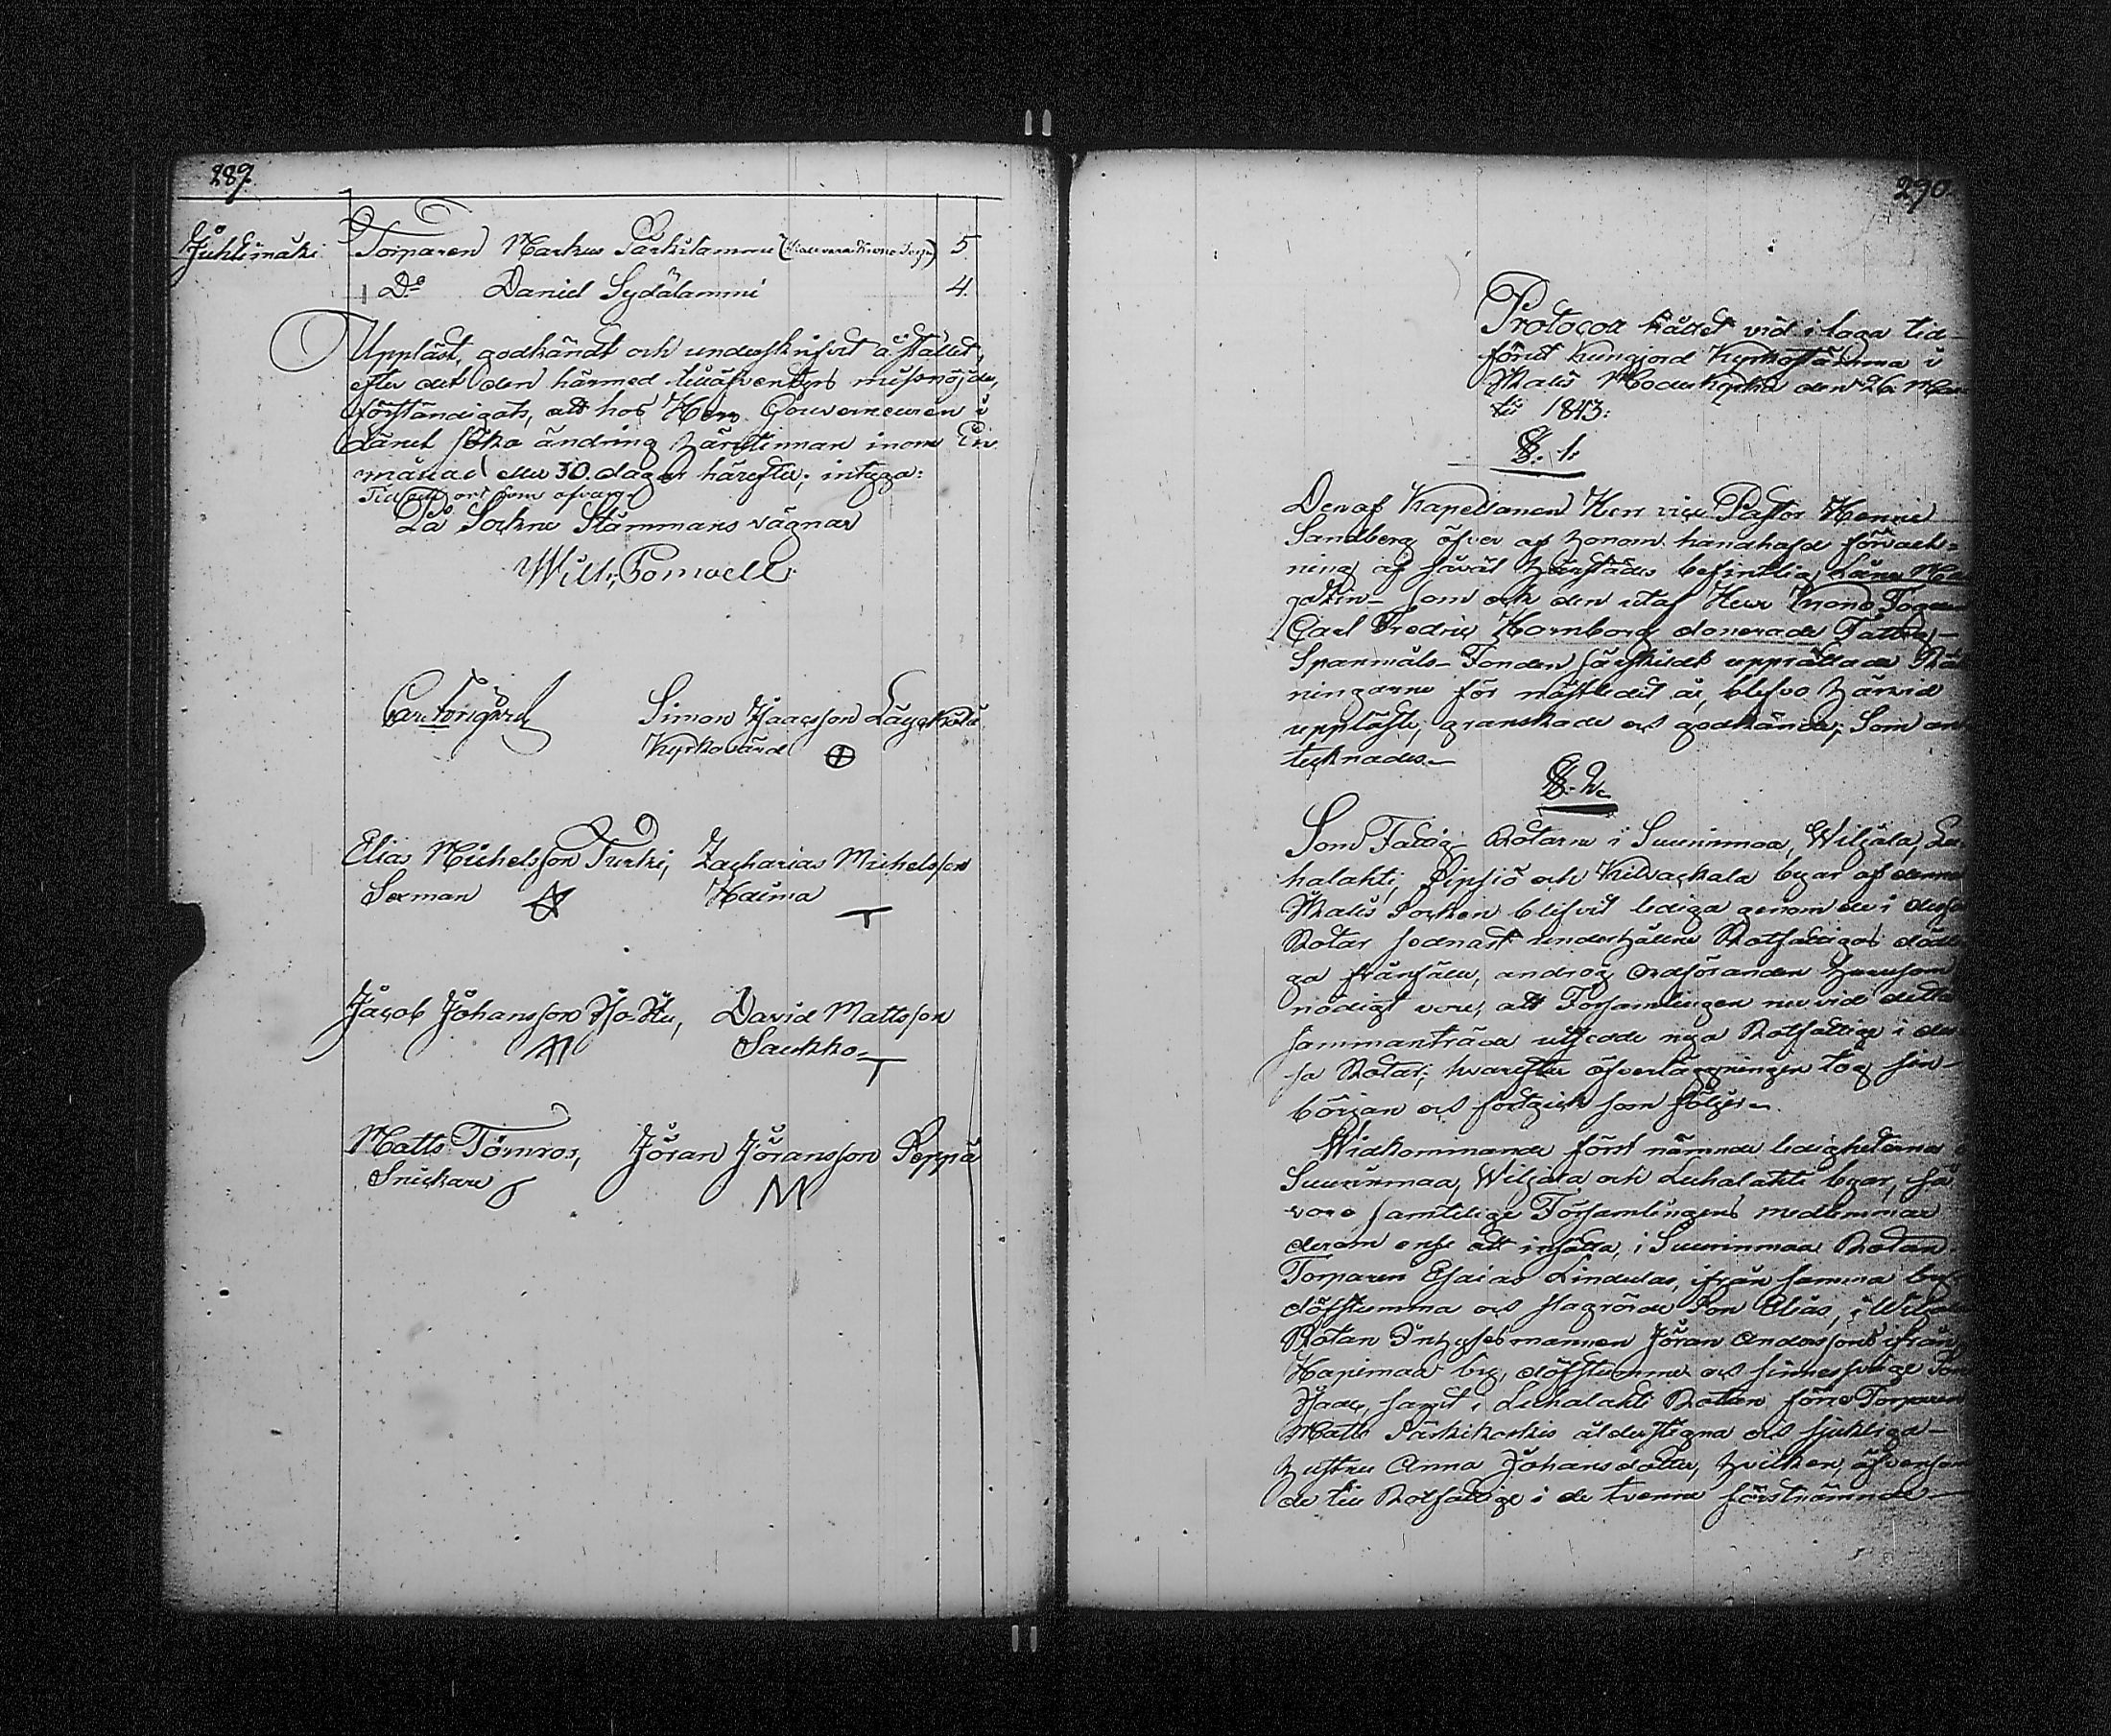 289.
Juhtimäki Torparen Markus Särkilammi ( Krono Torp) 5
Do Daniel Sydälammi 4.
Uppläst, godkändt och underskrifvet å stället,
efter det den härmed tilläfventyrs missnöjde,
förständigats, att hos Herr Gouverneuren i
Länet söka ändring härutinnan inom En
månad eller 30. dagar härefter; intyga:
Tid och ort som ofvan
På Sockne Stämmans vägnar
Wilh. Pomoell.
Simon Isaacsson Läykkälä
Kyrkovärd
Elias Michelsson Turkki, Zacharias Michelsson
Sexman Haima
Jacob Johansson Iso-Ili, David Mattsson
Saukko
Matts Törnroos, Jöran Jöransson Seppä
Snickare
290.
Protocoll hållet vid i laga tid
förut kungjord Kyrkostämma i
Ikalis Moderkyrka den 26 Mar
tii 1843:
§. 1.
Den af Kapellanen Herr vice Pastor Henric
Sandberg öfver af honom handhafd förvalt=
ning af såväl härstädes befintlig Låne Ma
gazin- som och den utaf Herr Krono Fogden
Carl Fredric Hornborg donerade Fattig-
Spanmåls- Fonden särskildt upprättade Räk
ningarne för nästledit år, blefvo härvid
uppläste, granskade och godkände; Som an
tecknades.-
§. 2.
Som Fattig Rotarne i Suurinmaa, Wiljala, Lu
halahti, Sipsiö och Kilvackala byar af denna
Ikalis Socken blifvit lediga genom de i dessa
Rotar sednast underhållne Rotfattigas dödli
ga frånfälle, androg Ordföranden hurusom
nödigt vore, att Församlingen nu vid detta
sammanträde utsedde nya Rotfattige i des
sa Rotar; hvarefter öfverläggningen tog sin
början och fortgick som följer.-
Widkommande först nämnde ledigheterna i
Suurinmaa, Wiljala och Luhalahti byar, så
voro samtelige Församlingens medlemmar
derom ense att insätta, i Suurinmaa Rotan
Torparen Esaias Lindulas, ifrån samma by,
döfstumma och Son Elias, i Wiljala
Rotan Inhysesmannen Jöran Anderssons ifrån
Hapimaa by, döfstumme och sinnessvage Son
Isaac, samt i Luhalahti Rotan förre Torparen
Matts Särkikoskis ålderstegna och sjukliga
hustru Anna Johansdotter, hvilken, äfvensom
de till Rotfattige i de tvenne förstnämnde